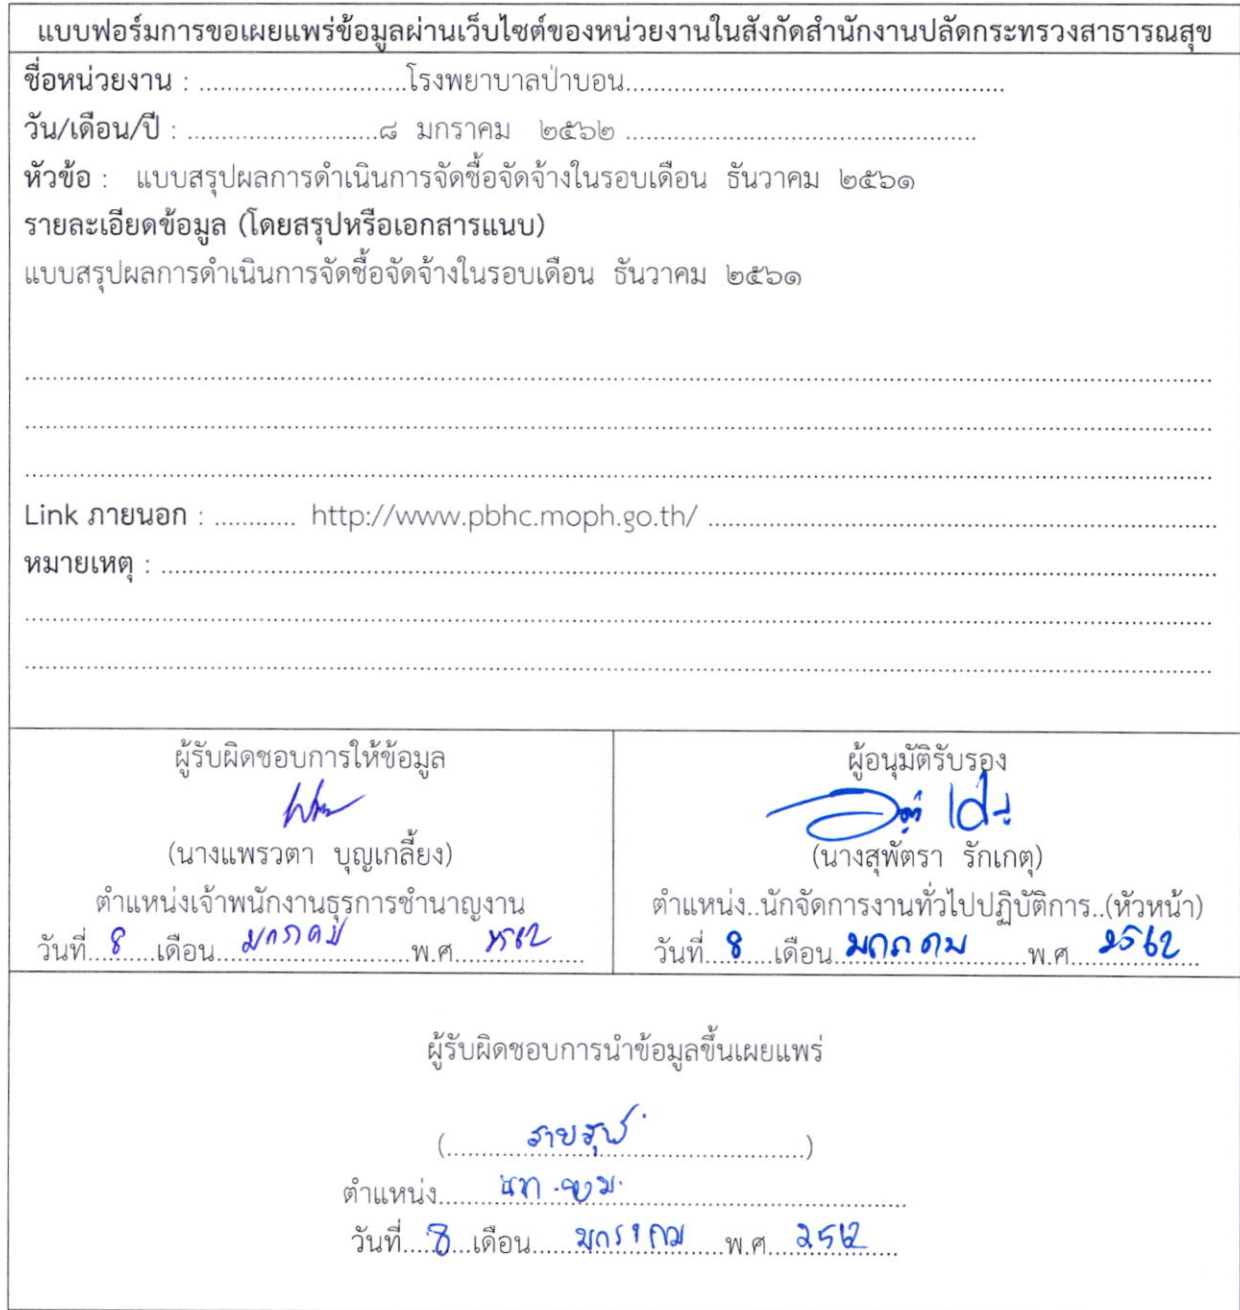 แบบฟอร์มการขอเผยแพร่ข้อมูลผ่านเว็บไซต์ของหน่วยงานในสังกัดสำนักงานปลัดกระทรวงสาธารณสุข
ชื่อหน่วยงาน : ..............................โรงพยาบาลป่าบอน.......................................................
วัน/เดือน/ปี : ............................๘ มกราคม ๒๕๖๒ ...................................................
หัวข้อ : แบบสรุปผลการดำเนินการจัดซื้อจัดจ้างในรอบเดือน ธันวาคม ๒๕๖๑
รายละเอียดข้อมูล (โดยสรุปหรือเอกสารแนบ)
แบบสรุปผลการดำเนินการจัดซื้อจัดจ้างในรอบเดือน ธันวาคม ๒๕๖๑
Link ภายนอก : ............ http://www.pbhc.moph.go.th/ ..........................................................................
หมายเหตุ : ..........................................................................................................................
ผู้รับผิดชอบการให้ข้อมูล
(นางแพรวตา บุญเกลี้ยง)
ตำแหน่งเจ้าพนักงานธุรการชำนาญงาน
วันที่....8......เดือน....มกราคม....พ.ศ....2562....
ผู้อนุมัติรับรอง
(นางสุพัตรา รักเกตุ)
ตำแหน่ง..นักจัดการงานทั่วไปปฏิบัติการ..(หัวหน้า)
วันที่....8.....เดือน..มกราคม....พ.ศ....2562....
ผู้รับผิดชอบการนำข้อมูลขึ้นเผยแพร่
(..................................................)
ตำแหน่ง............................................................
วันที่....8...เดือน......มกราคม......พ.ศ....2562....